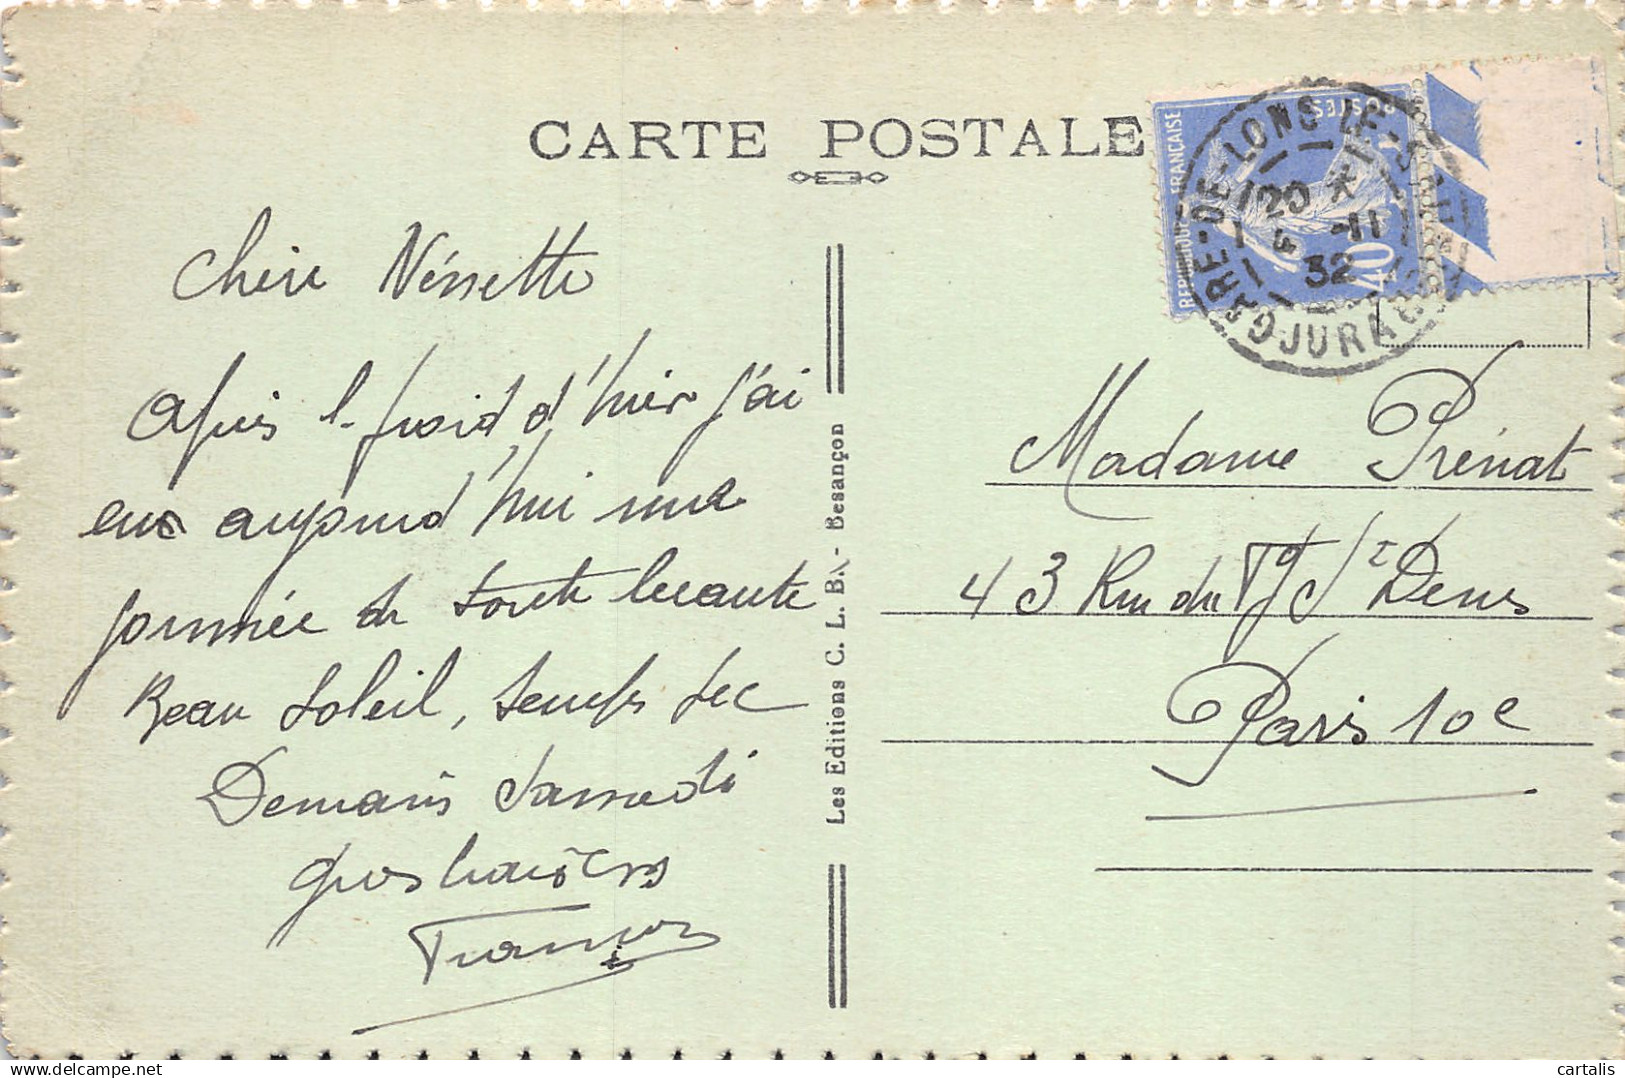 CARTE POSTALE
RÉPUBLIQUE FRANÇAISE
POSTES
40
GARE-DE-LONS-LE-SAUNIER
20 *
4 -11
32
JURA
Chère Nénette
Après le froid d'hier j'ai
eu aujourd'hui une
journée de toute beauté
Beau Soleil, temps sec
Demain Samedi
Gros baisers
Les Editions C. L. B. - Besançon
Madame Prénat
43 Rue du Fg St Denis
Paris 10e
cartalis